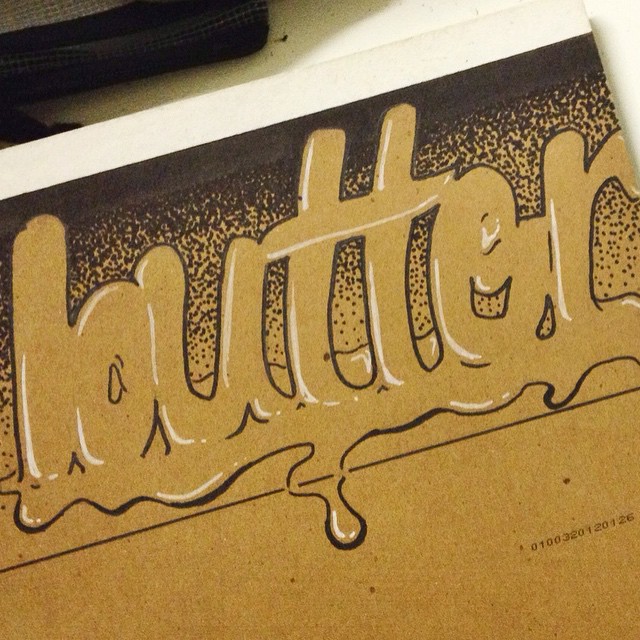 butter
0100320120126